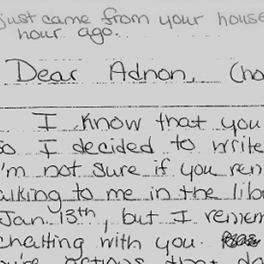 just came from your house
hour ago.
Dear Adnon, (ho
I know that you
so I decided to write
I'm not sure if you rem
alking to me in the libr
Jan. 13th, but I remem
chatting with you.
you're actions that da